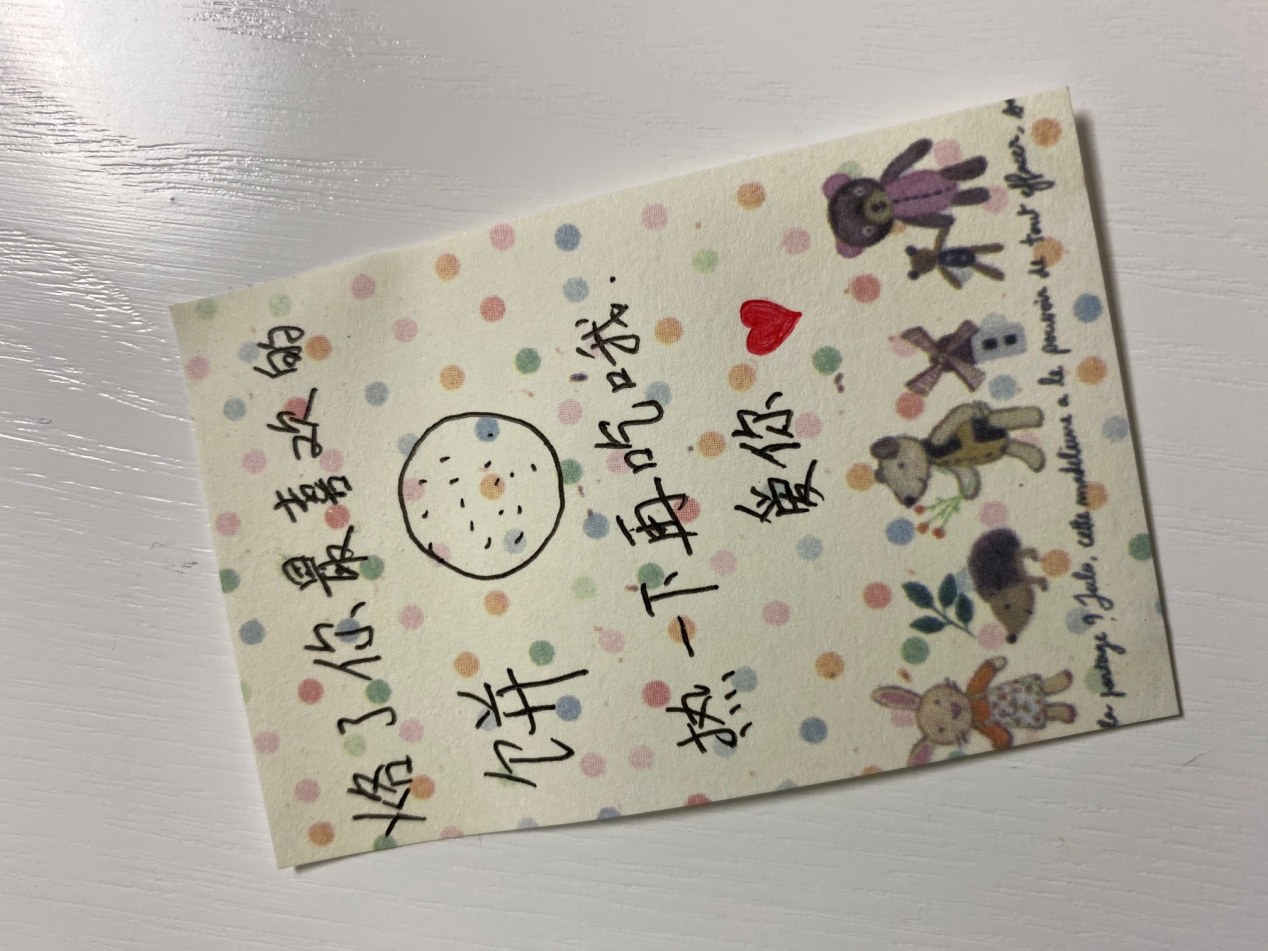 烙了你最喜欢的
饼
热一下再吃口哦.
爱你
le partage ? Jules, cette madeleine a le pouvoir de tout effacer,